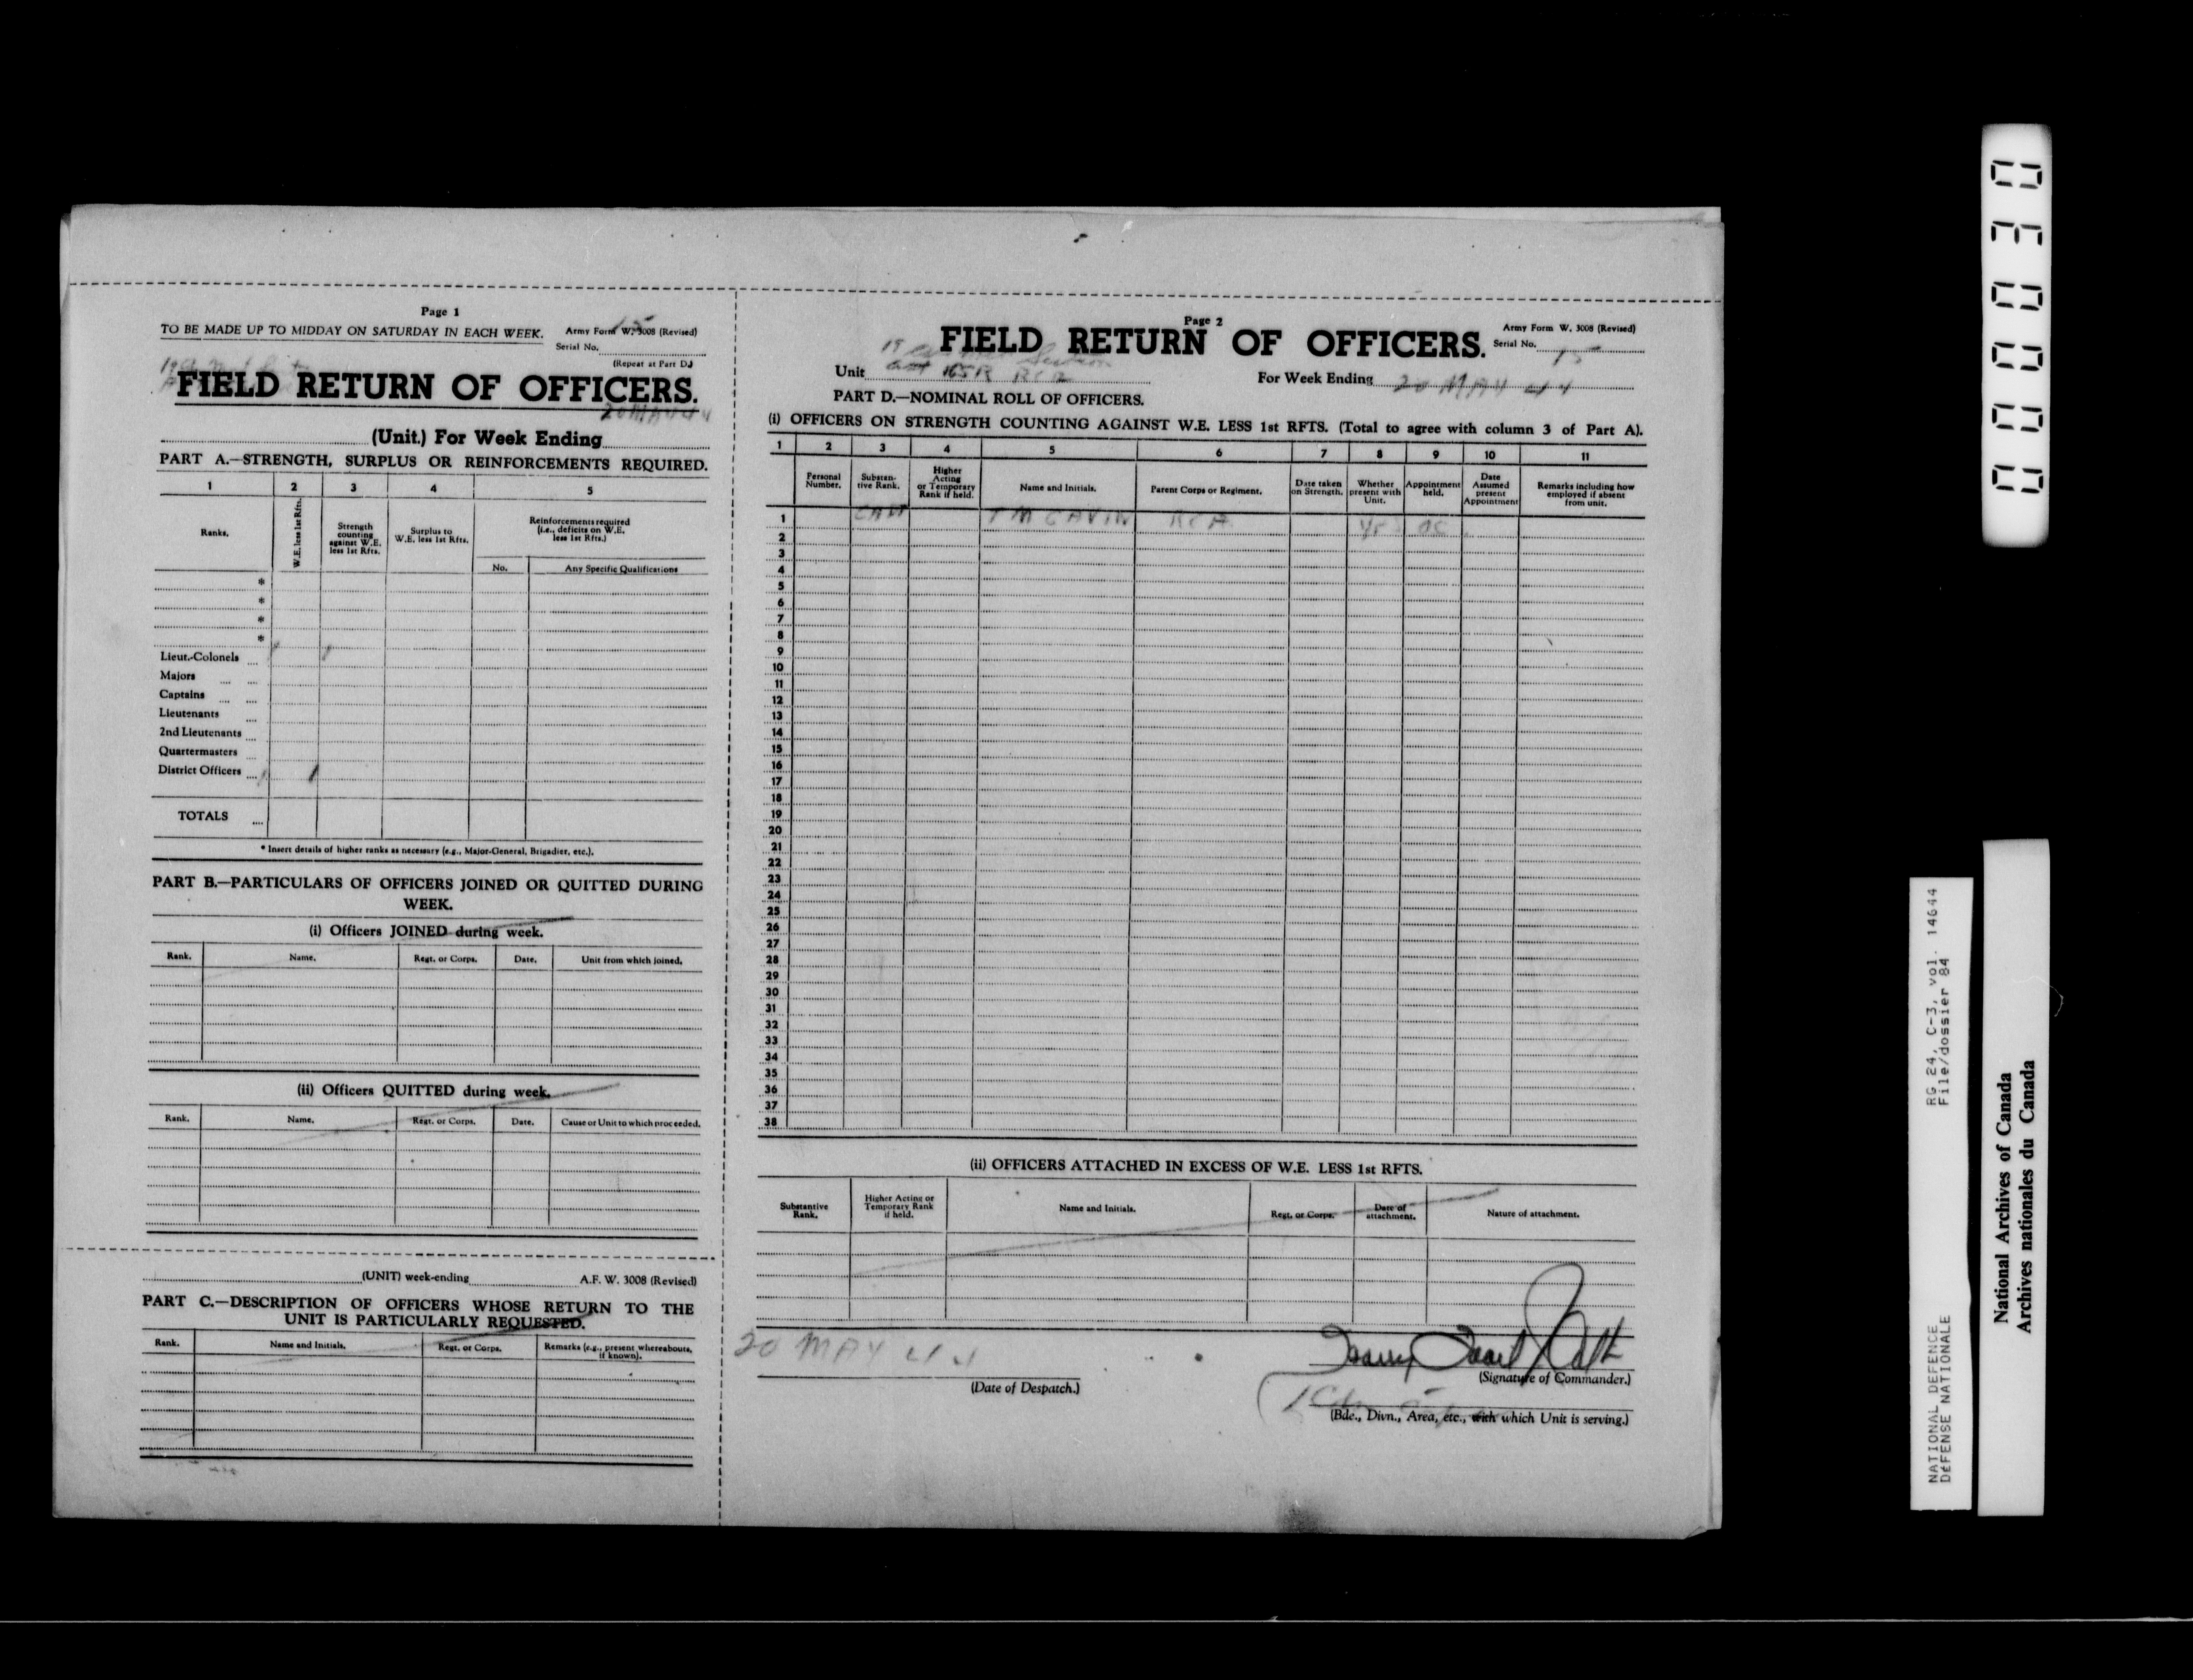 Page 1
TO BE MADE UP TO MIDDAY ON SATURDAY IN EACH WEEK.
Army Form W. 3008 (Revised)
15
Serial No.
(Repeat at Part D.)
FIELD RETURN OF OFFICERS.
20 MAY 44
(Unit.) For Week Ending
PART A.—STRENGTH, SURPLUS OR REINFORCEMENTS REQUIRED.
1 2 3 4 5
Ranks.
W.E. less 1st Rfts.
Strength counting against W.E. less 1st Rfts.
Surplus to W.E. less 1st Rfts.
Reinforcements required (i.e., deficits on W.E. less 1st Rfts.)
No. Any Specific Qualifications
*
*
*
*
Lieut.-Colonels 1 1
Majors
Captains
Lieutenants
2nd Lieutenants
Quartermasters
District Officers 1 1
TOTALS
* Insert details of higher ranks as necessary (e.g., Major-General, Brigadier, etc.).
PART B.—PARTICULARS OF OFFICERS JOINED OR QUITTED DURING
WEEK.
(i) Officers JOINED during week.
Rank. Name. Regt. or Corps. Date. Unit from which joined.
(ii) Officers QUITTED during week.
Rank. Name. Regt. or Corps. Date. Cause or Unit to which proceeded.
(UNIT) week-ending A.F. W. 3008 (Revised)
PART C.—DESCRIPTION OF OFFICERS WHOSE RETURN TO THE
UNIT IS PARTICULARLY REQUESTED.
Rank. Name and Initials. Regt. or Corps. Remarks (e.g., present whereabouts, if known).
Page 2
FIELD RETURN OF OFFICERS.
Army Form W. 3008 (Revised)
Serial No. 15
19
Unit
For Week Ending 20 MAY 44
PART D.—NOMINAL ROLL OF OFFICERS.
(i) OFFICERS ON STRENGTH COUNTING AGAINST W.E. LESS 1st RFTS. (Total to agree with column 3 of Part A).
1 2 3 4 5 6 7 8 9 10 11
Personal Number.
Substantive Rank.
Higher Acting or Temporary Rank if held.
Name and Initials.
Parent Corps or Regiment.
Date taken on Strength.
Whether present with Unit.
Appointment held.
Date Assumed present Appointment
Remarks including how employed if absent from unit.
1 CAPT T M GAVIN RCA Yes OC
2
3
4
5
6
7
8
9
10
11
12
13
14
15
16
17
18
19
20
21
22
23
24
25
26
27
28
29
30
31
32
33
34
35
36
37
38
(ii) OFFICERS ATTACHED IN EXCESS OF W.E. LESS 1st RFTS.
Substantive Rank.
Higher Acting or Temporary Rank if held.
Name and Initials.
Regt. or Corps.
Date of attachment.
Nature of attachment.
20 MAY 44
(Date of Despatch.)
(Signature of Commander.)
(Bde., Divn., Area, etc., with which Unit is serving.)
000030
RG 24, C-3, vol. 14644
File/dossier 84
NATIONAL DEFENCE
DÉFENSE NATIONALE
National Archives of Canada
Archives nationales du Canada